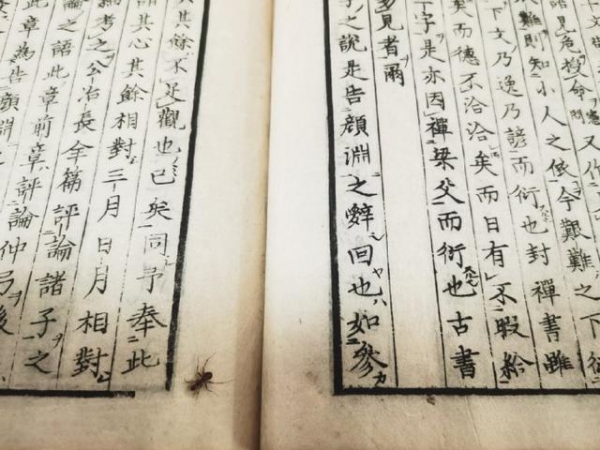 語見危授命
難則知小人之依今艱難之下從
下文乃逸乃諺而衍也封禪書雖
矣而德不洽洽矣而日有不暇給
字是亦因禪梁父而衍也古書
多見者爾
之說是告顏淵之辭回也如參
其餘不足觀也已矣同予奉此
其心其餘相對三月日月相對
為考之公冶長全篇評論諸子之
論之語此章前章評論仲弓後
此章為告顏淵